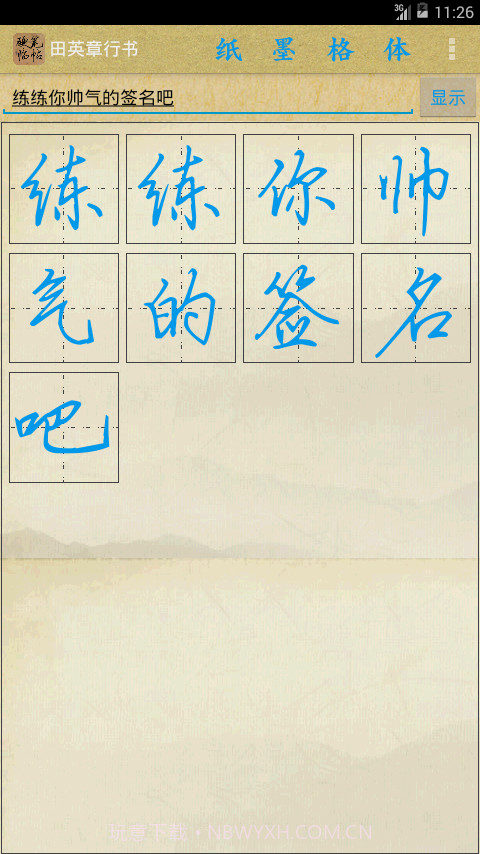 3G 11:26
硬笔临帖 田英章行书 纸 墨 格 体
练练你帅气的签名吧 显示
练练你帅
气的签名
吧
玩享下载·NBWYXH.COM.CN